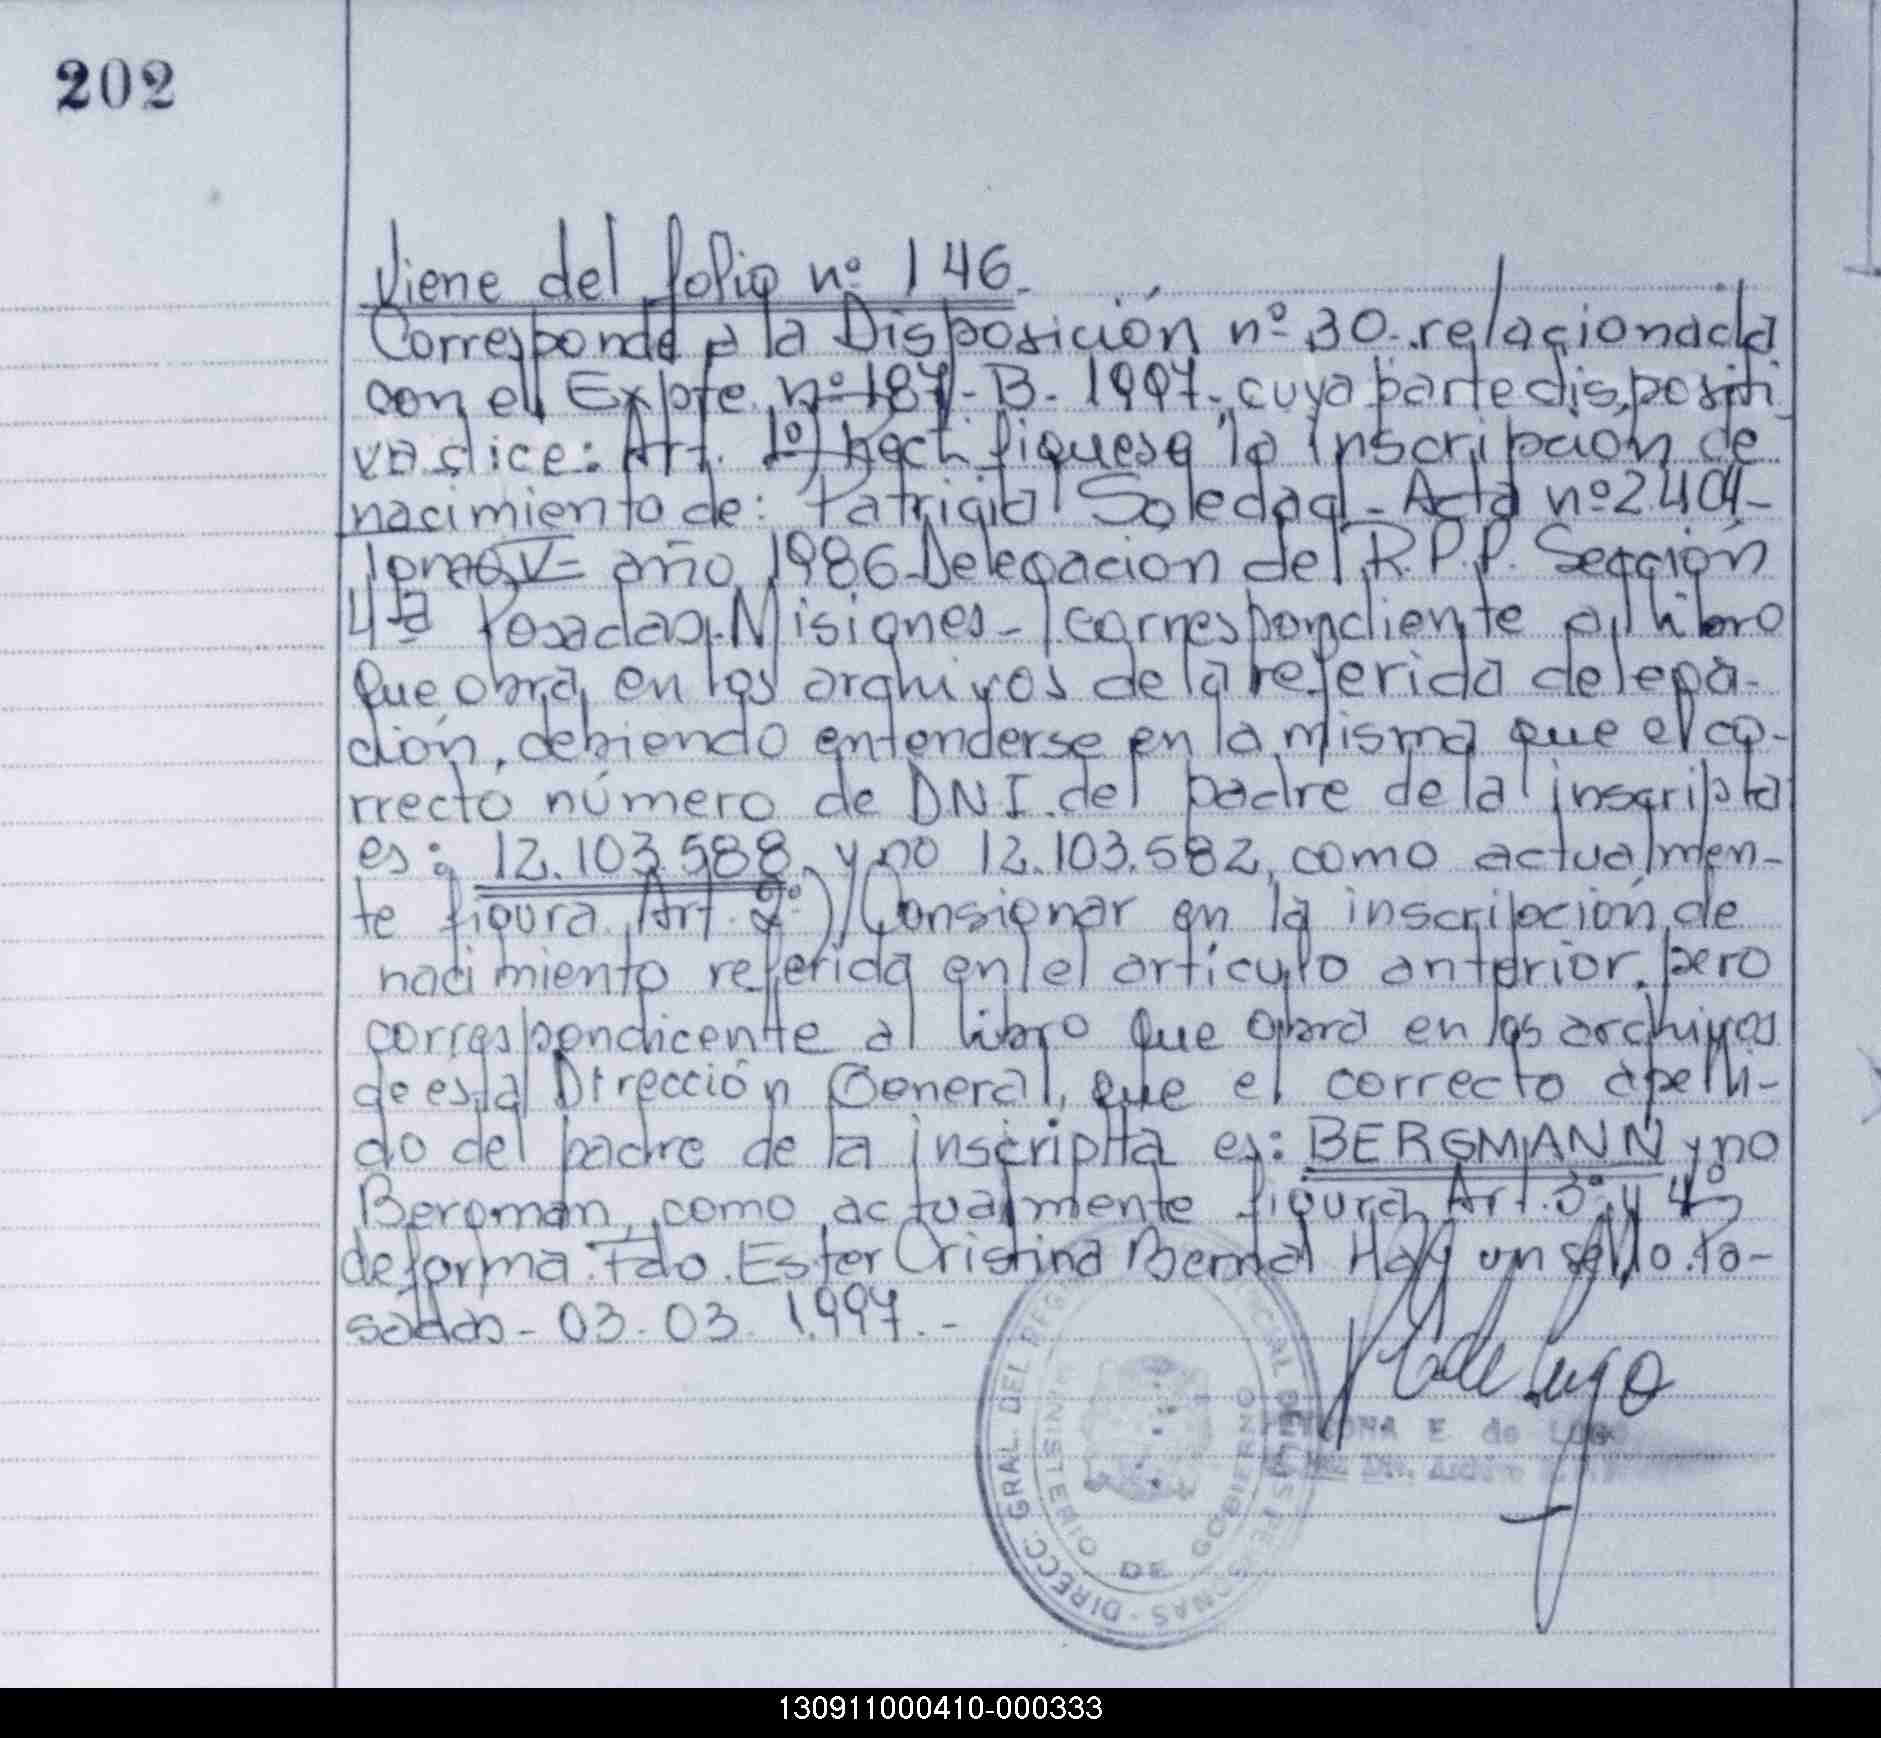 202
Viene del folio nº 146.-
Corresponde a la Disposición nº 30. relacionada
con el Expte. nº 187-B-1997-, cuya parte dispositi-
va dice: Art. 1º) Rectifiquese la inscripción de
nacimiento de: Patricia Soledad - Acta nº 2.404-
Tomo V- año 1986-Delegación del R.P.P. Sección
4ª Posadas-Misiones- correspondiente al libro
que obra en los archivos de la referida delega-
ción, debiendo entenderse en la misma que el co-
rrecto número de DNI. del padre de la inscripta
es: 12.103.588 y no 12.103.582, como actualmen-
te figura. Art. 2º) Consignar en la inscripción de
nacimiento referida en el artículo anterior, pero
correspondicente al libro que obra en los archivos
de esta Dirección General, que el correcto apelli-
do del padre de la inscripta es: BERGMANN y no
Bergman, como actualmente figura. Art. 3º y 4º
de forma. Fdo. Ester Cristina Bernal Hay un sello. Po-
sadas - 03-03-1.997.-
DIRECC. GRAL. DEL DE LAS PERSONAS
DE GOBIERNO
E. de LUGO
130911000410-000333